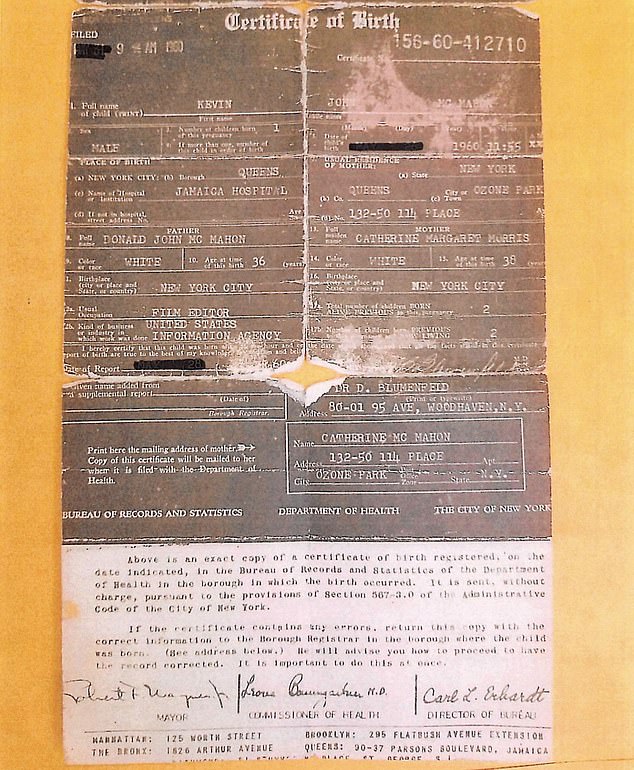 Certificate of Birth
FILED 156-60-412710
9 AM 1960 Certificate No.
1. Full name of child (PRINT) KEVIN JOHN MC MAHON
First name
Sex MALE 3. Number of children born of this pregnancy 1 (Month) (Day) (Year)
If more than one, number of this child in order of birth Date of child's birth 1960 11:55
PLACE OF BIRTH USUAL RESIDENCE OF MOTHER:
(a) NEW YORK CITY: (b) Borough QUEENS (a) State NEW YORK
(c) Name of Hospital or Institution JAMAICA HOSPITAL (b) Co. QUEENS City or (c) Town OZONE PARK
(d) If not in hospital, street address No. No. 132-50 114 PLACE
FATHER MOTHER
8. Full name DONALD JOHN MC MAHON 13. Full maiden name CATHERINE MARGARET MORRIS
9. Color or race WHITE 10. Age at time of this birth 36 (years) 14. Color or race WHITE 15. Age at time of this birth 38
Birthplace (city or place and State, or country) NEW YORK CITY 16. Birthplace (city or place and State, or country) NEW YORK CITY
Usual Occupation FILM EDITOR Total number of children BORN ALIVE PREVIOUS to this pregnancy 2
Kind of business or industry in which work was done UNITED STATES INFORMATION AGENCY Number of children born PREVIOUS NOW LIVING 2
I hereby certify that this child was born
report of birth are true to the best of my knowledge,
Date of Report
Given name added from a supplemental report DR D. BLUMENFELD
(Date of) (Print or typewrite)
Borough Registrar. Address 80-01 95 AVE, WOODHAVEN, N.Y.
Print here the mailing address of mother. Name CATHERINE MC MAHON
Copy of this certificate will be mailed to her Address 132-50 114 PLACE Apt.
when it is filed with the Department of City OZONE PARK Post Office Zone State N.Y.
Health.
BUREAU OF RECORDS AND STATISTICS DEPARTMENT OF HEALTH THE CITY OF NEW YORK
Above is an exact copy of a certificate of birth registered, on the
date indicated, in the Bureau of Records and Statistics of the Department
of Health in the borough in which the birth occurred. It is sent, without
charge, pursuant to the provisions of Section 567-3.0 of the Administrative
Code of the City of New York.
If the certificate contains any errors, return this copy with the
correct information to the Borough Registrar in the borough where the child
was born. (See address below.) He will advise you how to proceed to have
the record corrected. It is important to do this at once.
Robert F. Wagner Jr. Leona Baumgartner M.D. Carl L. Erhardt
MAYOR COMMISSIONER OF HEALTH DIRECTOR OF BUREAU
MANHATTAN: 125 WORTH STREET BROOKLYN: 295 FLATBUSH AVENUE EXTENSION
THE BRONX: 1826 ARTHUR AVENUE QUEENS: 90-37 PARSONS BOULEVARD, JAMAICA
PLACE, ST. GEORGE, S.I.